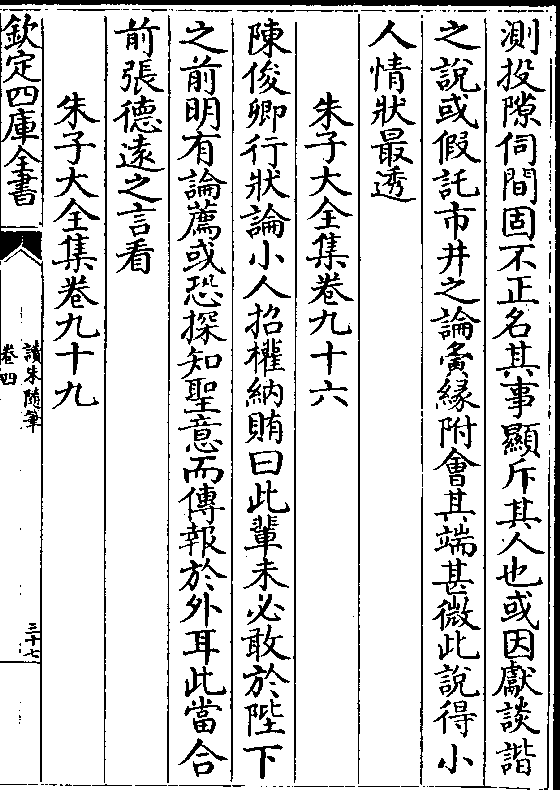 測投隙伺間固不正名其事顯斥其人也或因獻談諧
之說或假託市井之論夤緣附會其端甚微此說得小
人情狀最透
朱子大全集卷九十六
陳俊卿行狀論小人招權納賄曰此輩未必敢於陛下
之前明有論薦或恐探知聖意而傳報於外耳此當合
前張德遠之言看
朱子大全集卷九十九
欽定四庫全書
讀朱隨筆
卷四
三十七